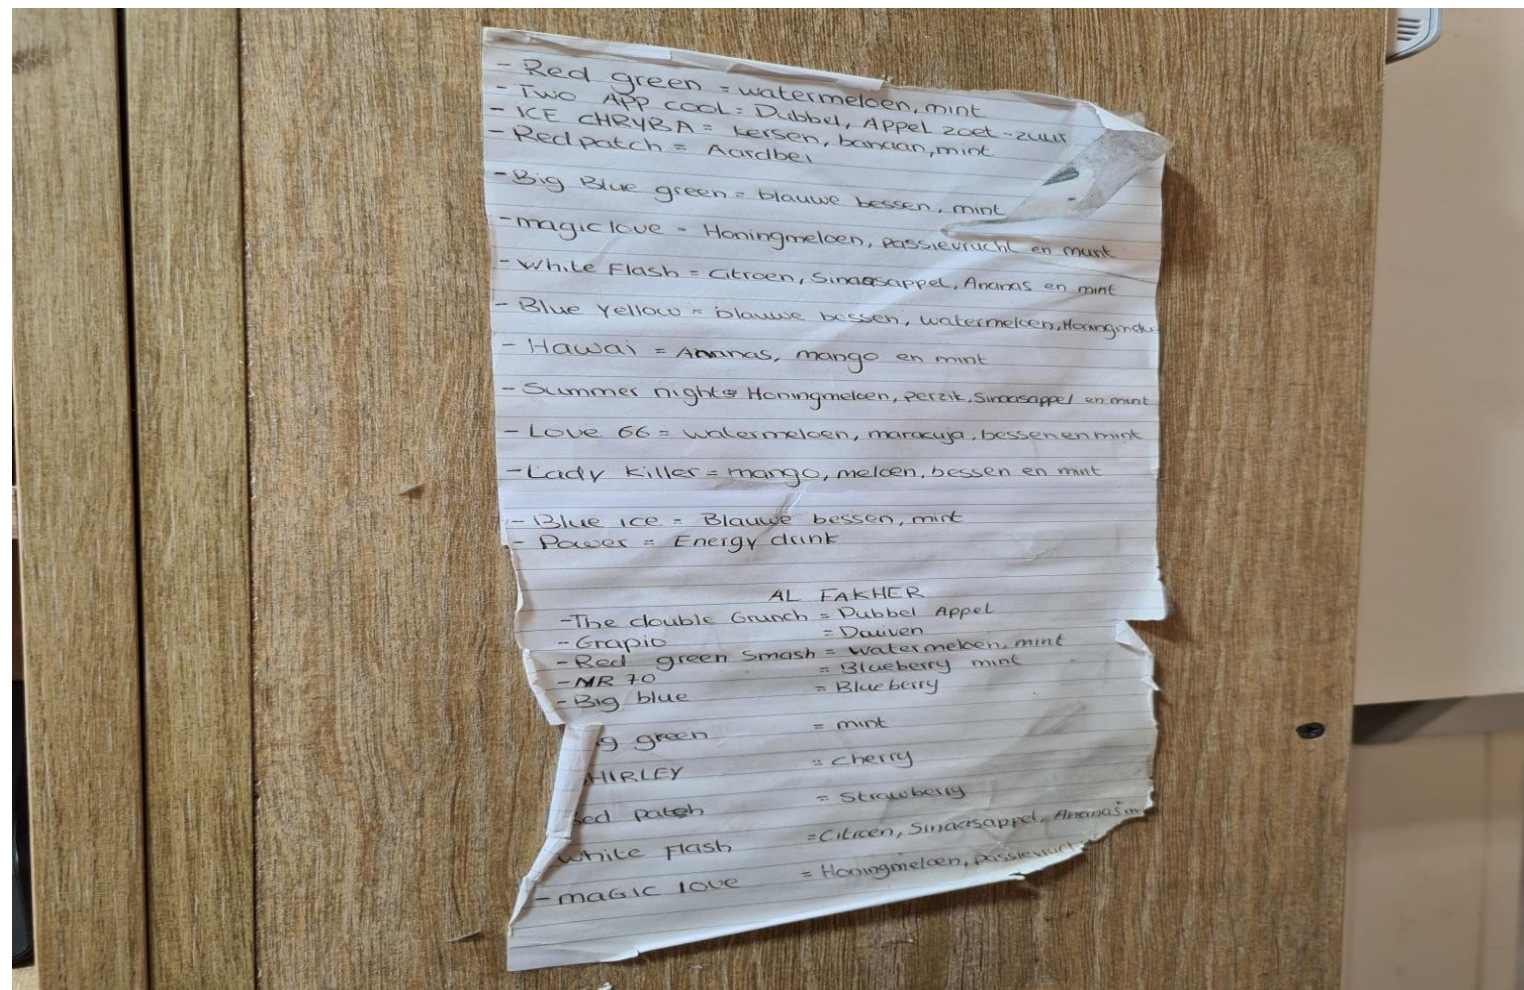 - Red green = watermeloen, mint
- TWO APP COOL = Dubbel, Appel zoet-zuur
- ICE CHRYBA = kersen, banaan, mint
- Redpatch = Aardbei
- Big Blue green = blauwe bessen, mint
- magic love = Honingmeloen, passievrucht en munt
- White Flash = citroen, Sinaasappel, Ananas en mint
- Blue Yellow = blauwe bessen, watermeloen, Honingmelo
- Hawai = Ananas, mango en mint
- Summer night = Honingmeloen, perzik, Sinaasappel en mint
- Love 66 = watermeloen, maracuja, bessen en mint
- Lady killer = mango, meloen, bessen en mint
- Blue ice = Blauwe bessen, mint
- Power = Energy drink
AL FAKHER
- The double Crunch = Dubbel Appel
- Grapio = Dauven
- Red green Smash = watermeloen, mint
- NR 70 = Blueberry mint
- Big blue = Blueberry
g green = mint
HIRLEY = cherry
ed patch = Strawberry
white Flash = Citroen, Sinaasappel, Ananas
- MAGIC love = Honingmeloen, passievruc